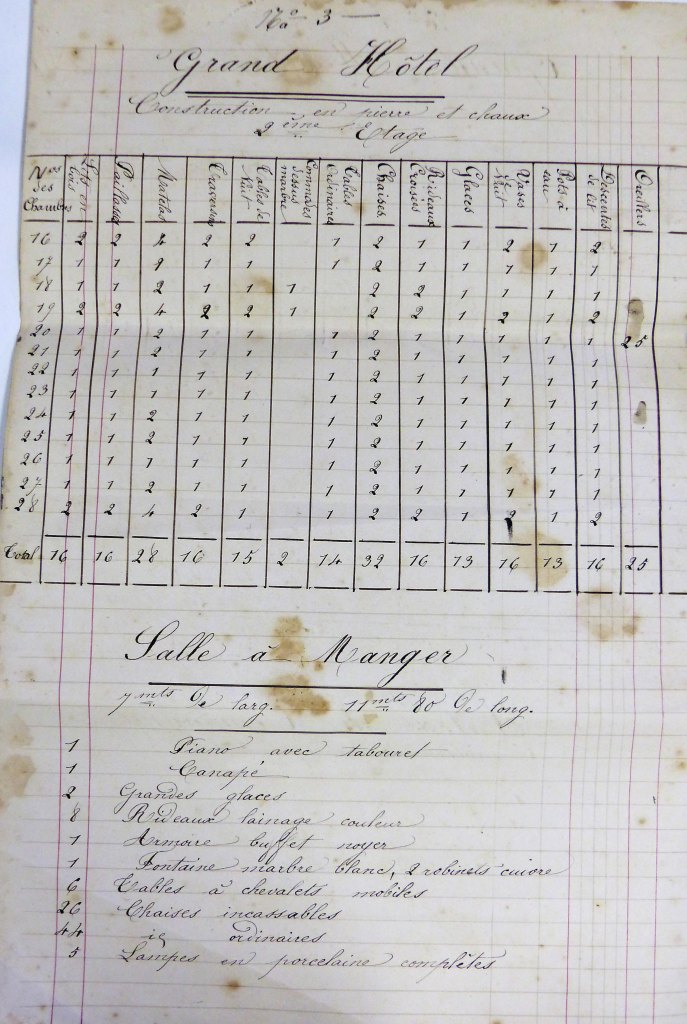 No 3
Grand Hôtel
Construction en pierre et chaux
2ème Etage
Nos des Chambres Lits en bois Paillasses Matelas Traversins Tables de Nuit Commodes dessus marbre Tables ordinaires Chaises Rideaux Croisées Glaces Vases Nuit Pots à eau Descentes de lit Oreillers
16 2 2 4 2 2 1 2 1 1 2 1 2
17 1 1 2 1 1 1 2 1 1 1 1 1
18 1 1 2 1 1 1 2 2 1 1 1 1
19 2 2 4 2 2 1 2 2 1 2 1 2
20 1 1 2 1 1 1 2 1 1 1 1 1 25
21 1 1 2 1 1 1 2 1 1 1 1 1
22 1 1 1 1 1 1 2 1 1 1 1 1
23 1 1 1 1 1 1 2 1 1 1 1 1
24 1 1 2 1 1 1 2 1 1 1 1 1
25 1 1 2 1 1 1 2 1 1 1 1 1
26 1 1 1 1 1 1 2 1 1 1 1 1
27 1 1 2 1 1 1 2 1 1 1 1 1
28 2 2 4 2 1 1 2 2 1 2 1 2
Total 16 16 28 16 15 2 14 32 16 13 16 13 16 25
Salle à Manger
7 mts de larg. 11 mts 80 de long.
1 Piano avec tabouret
1 Canapé
2 Grandes glaces
8 Rideaux lainage couleur
1 Armoire buffet noyer
1 Fontaine marbre blanc, 2 robinets cuivre
6 Tables à chevalets mobiles
26 Chaises incassables
44 id ordinaires
5 Lampes en porcelaine complètes